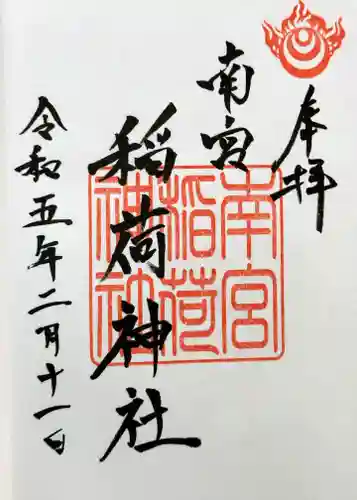 奉拝
南宮
稲荷神社
令和五年二月十一日
南宮
稲荷
神社